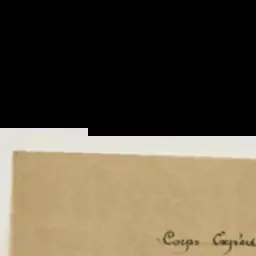 Corps Expéd